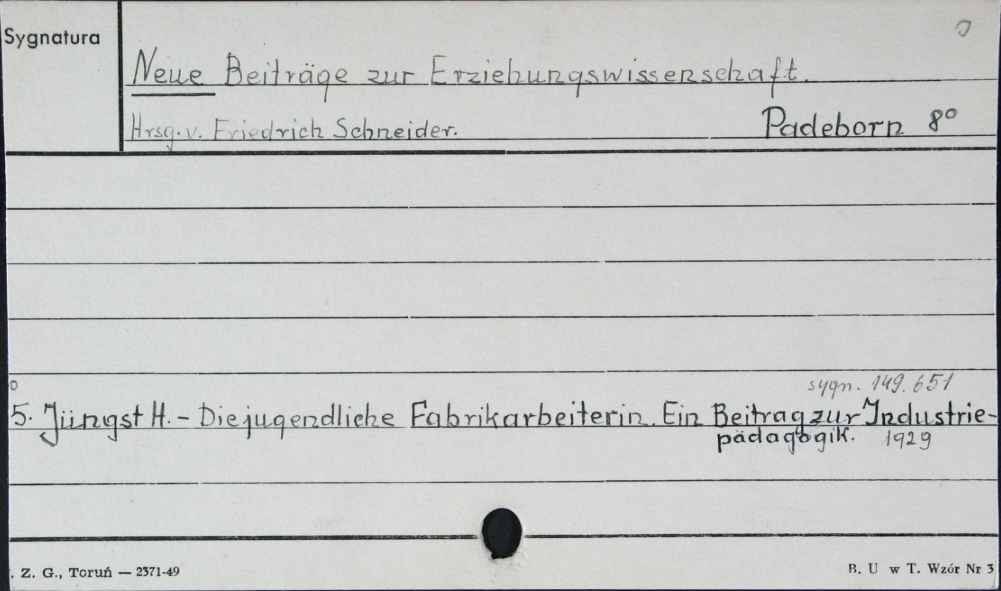 Sygnatura
Neue Beiträge zur Erziehungswissenschaft.
Hrsg. v. Friedrich Schneider. Padeborn 8°
sygn. 149.651
5. Jüngst H. - Die jugendliche Fabrikarbeiterin. Ein Beitrag zur Industrie-
pädagogik. 1929
. Z. G., Toruń — 2371-49
B. U w T. Wzór Nr 3